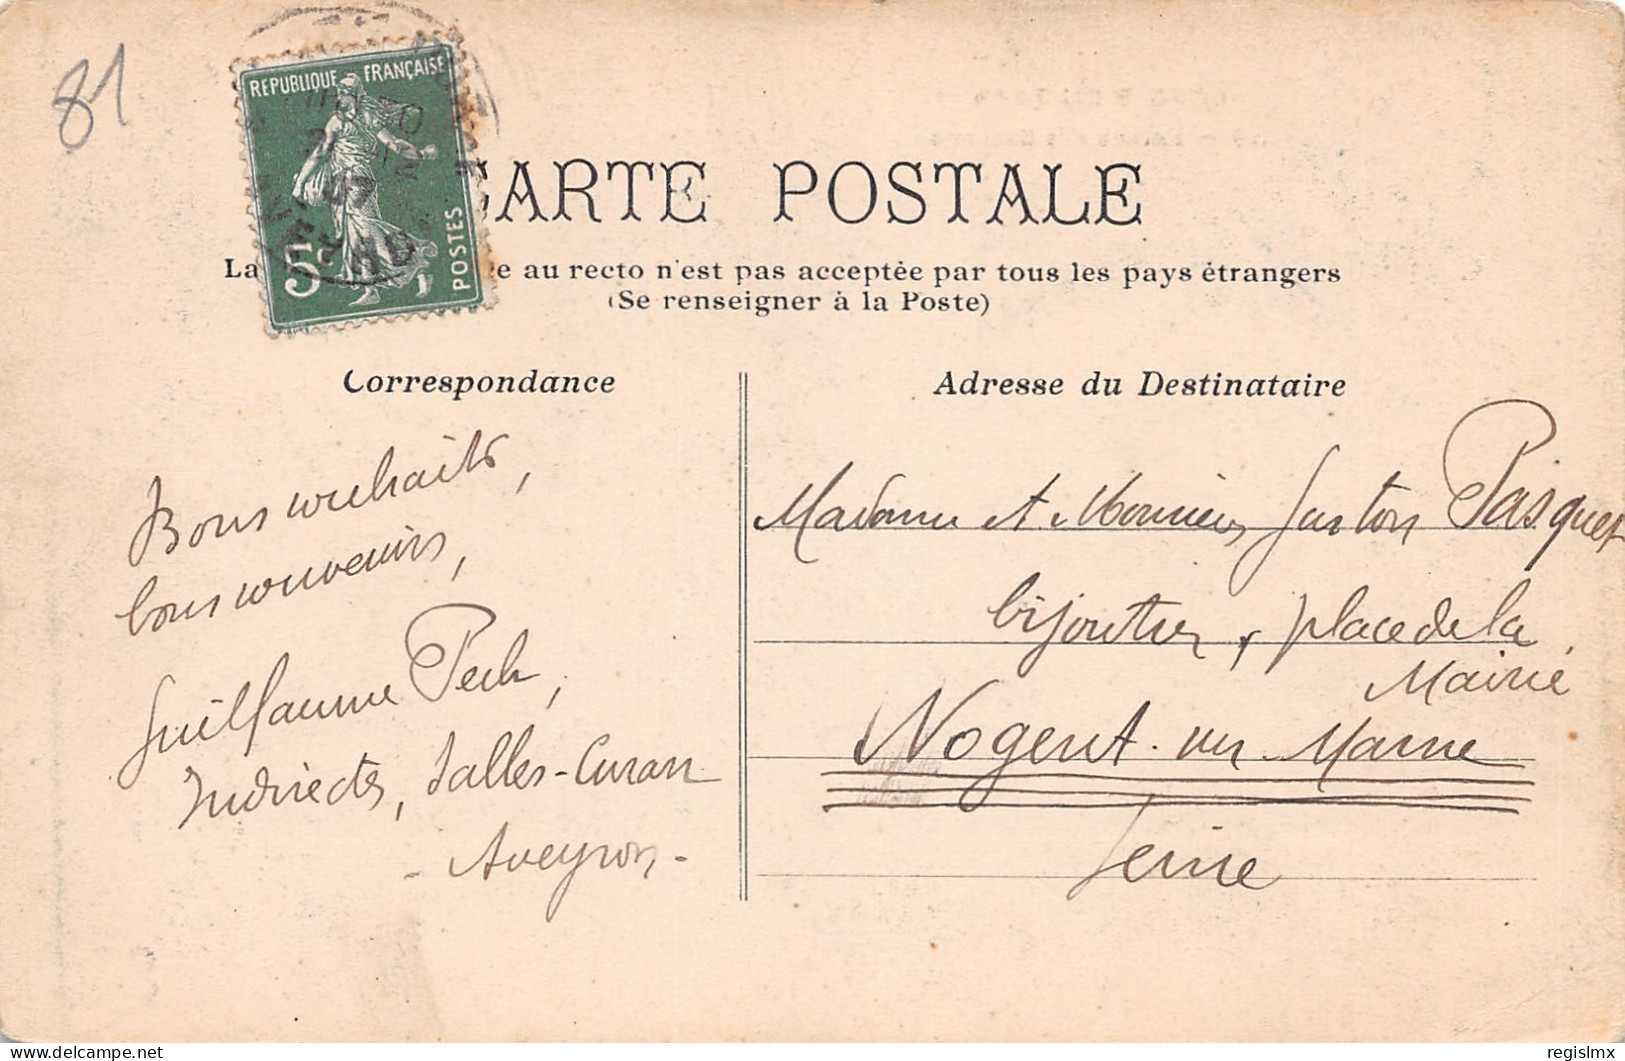 81
REPUBLIQUE FRANÇAISE
5c
POSTES
CARTE POSTALE
La e au recto n'est pas acceptée par tous les pays étrangers
(Se renseigner à la Poste)
Correspondance
Bons souhaits,
bons souvenirs,
Guillaume Pech,
Indirectes, Salles-Curan
- Aveyron -
Adresse du Destinataire
Madame et Monsieur Gaston Pasquet
bijoutier, place de la
Mairie
Nogent sur Marne
Seine
regislmx
delcampe.net